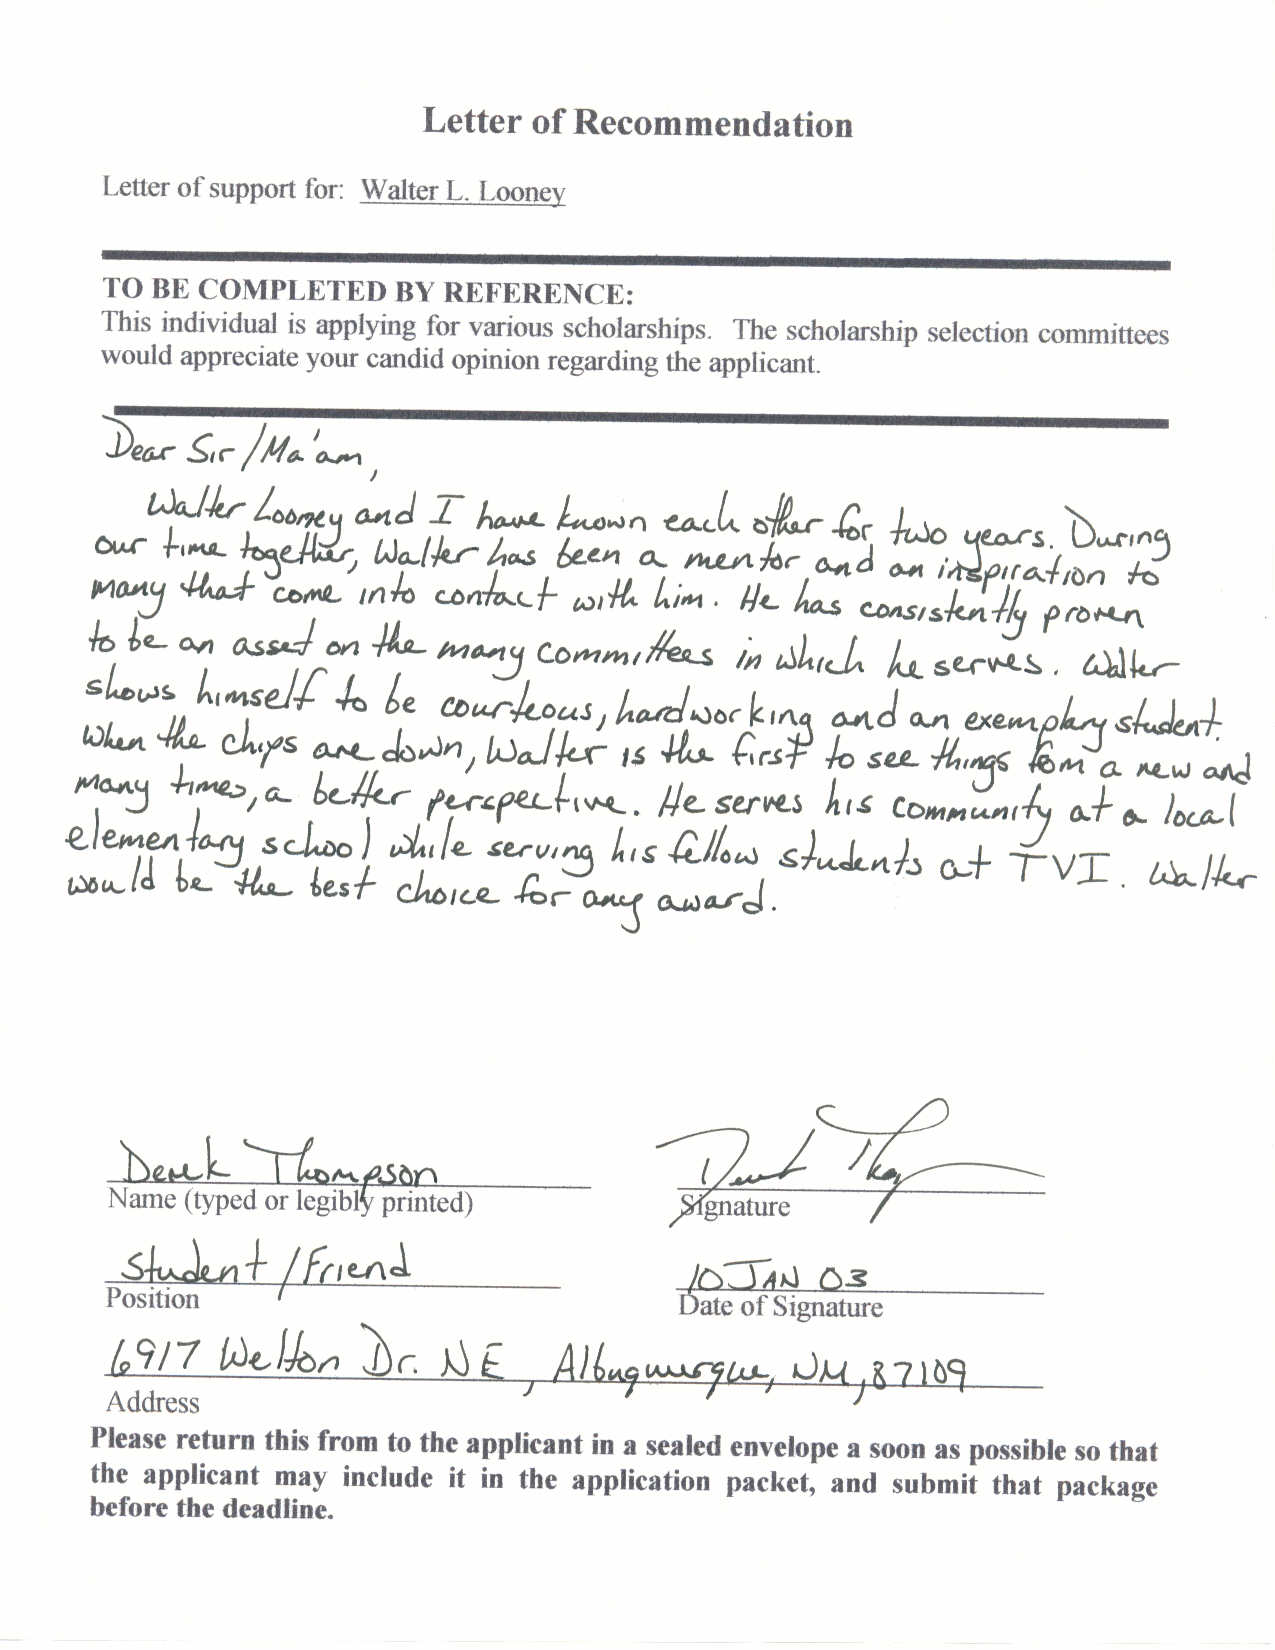 Letter of Recommendation
Letter of support for: Walter L. Looney
TO BE COMPLETED BY REFERENCE:
This individual is applying for various scholarships. The scholarship selection committees
would appreciate your candid opinion regarding the applicant.
Dear Sir/Ma'am,
Walter Looney and I have known each other for two years. During
our time together, Walter has been a mentor and an inspiration to
many that come into contact with him. He has consistently proven
to be an asset on the many committees in which he serves. Walter
shows himself to be courteous, hardworking and an exemplary student.
When the chips are down, Walter is the first to see things from a new and
many times, a better perspective. He serves his community at a local
elementary school while serving his fellow students at TVI. Walter
would be the best choice for any award.
Derek Thompson
Name (typed or legibly printed)
Signature
Student/Friend
10 JAN 03
Position
Date of Signature
6917 Welton Dr. NE, Albuquerque, NM, 87109
Address
Please return this from to the applicant in a sealed envelope a soon as possible so that
the applicant may include it in the application packet, and submit that package
before the deadline.